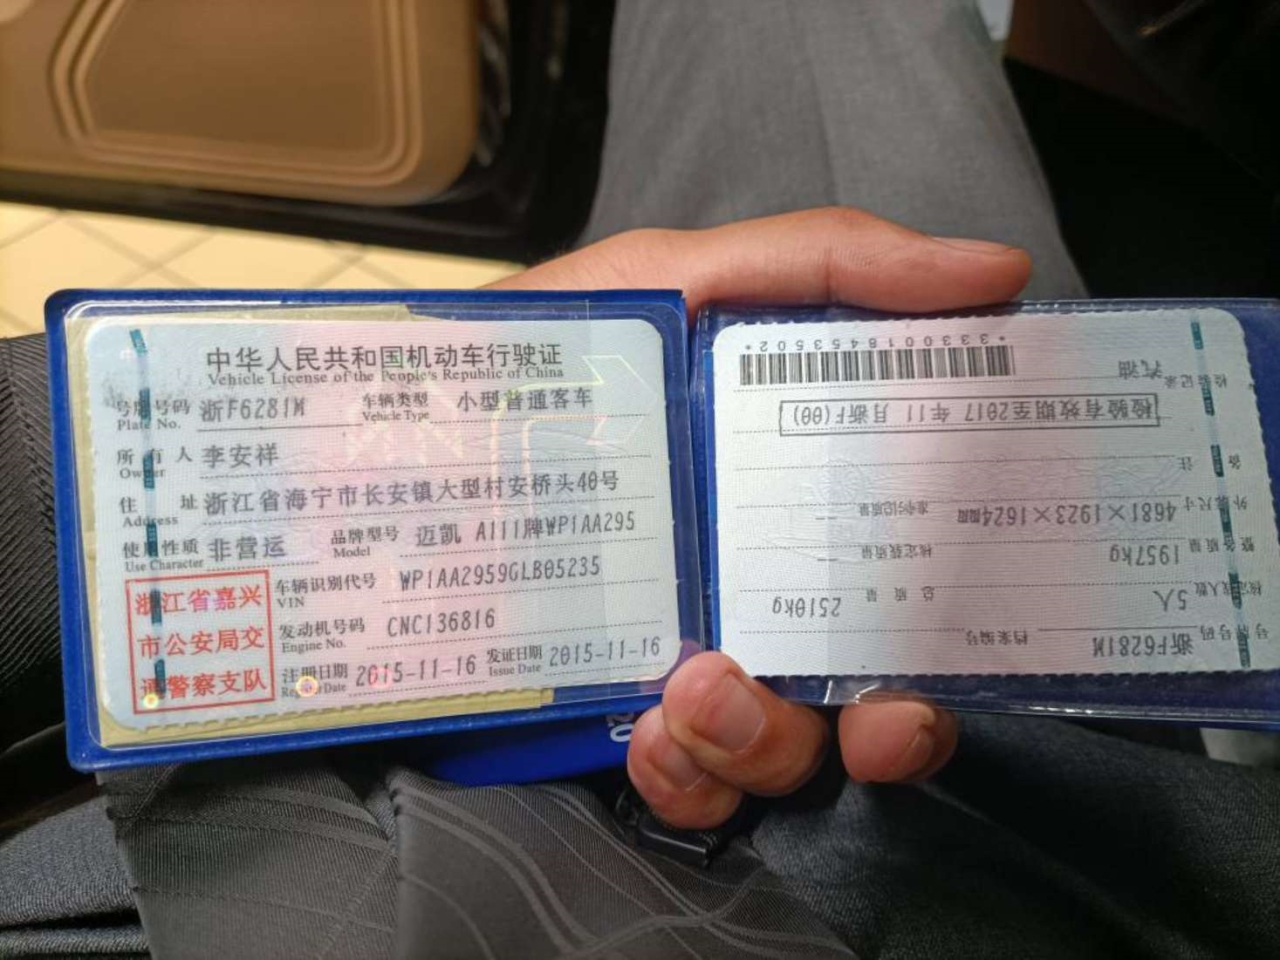 中华人民共和国机动车行驶证
Vehicle License of the People's Republic of China
号牌号码 浙F6281M 车辆类型 小型普通客车
Plate No. Vehicle Type
所有人 李安祥
Owner
住址 浙江省海宁市长安镇大型村安桥头40号
Address
使用性质 非营运 品牌型号 迈凯 A111牌WP1AA295
Use Character Model
浙江省嘉兴
市公安局交
通警察支队
车辆识别代号 WP1AA2959GLB05235
VIN
发动机号码 CNC136816
Engine No.
注册日期 2015-11-16 发证日期 2015-11-16
Register Date Issue Date
号牌号码 浙F6281M 档案编号
核定载人数 5人 总质量 2510kg
整备质量 1957kg 核定载质量 —
外廓尺寸 4681×1923×1624mm 准牵引总质量 —
备注
检验有效期至2017年11月浙F(00)
检验记录 汽油
*3330018453502*
20